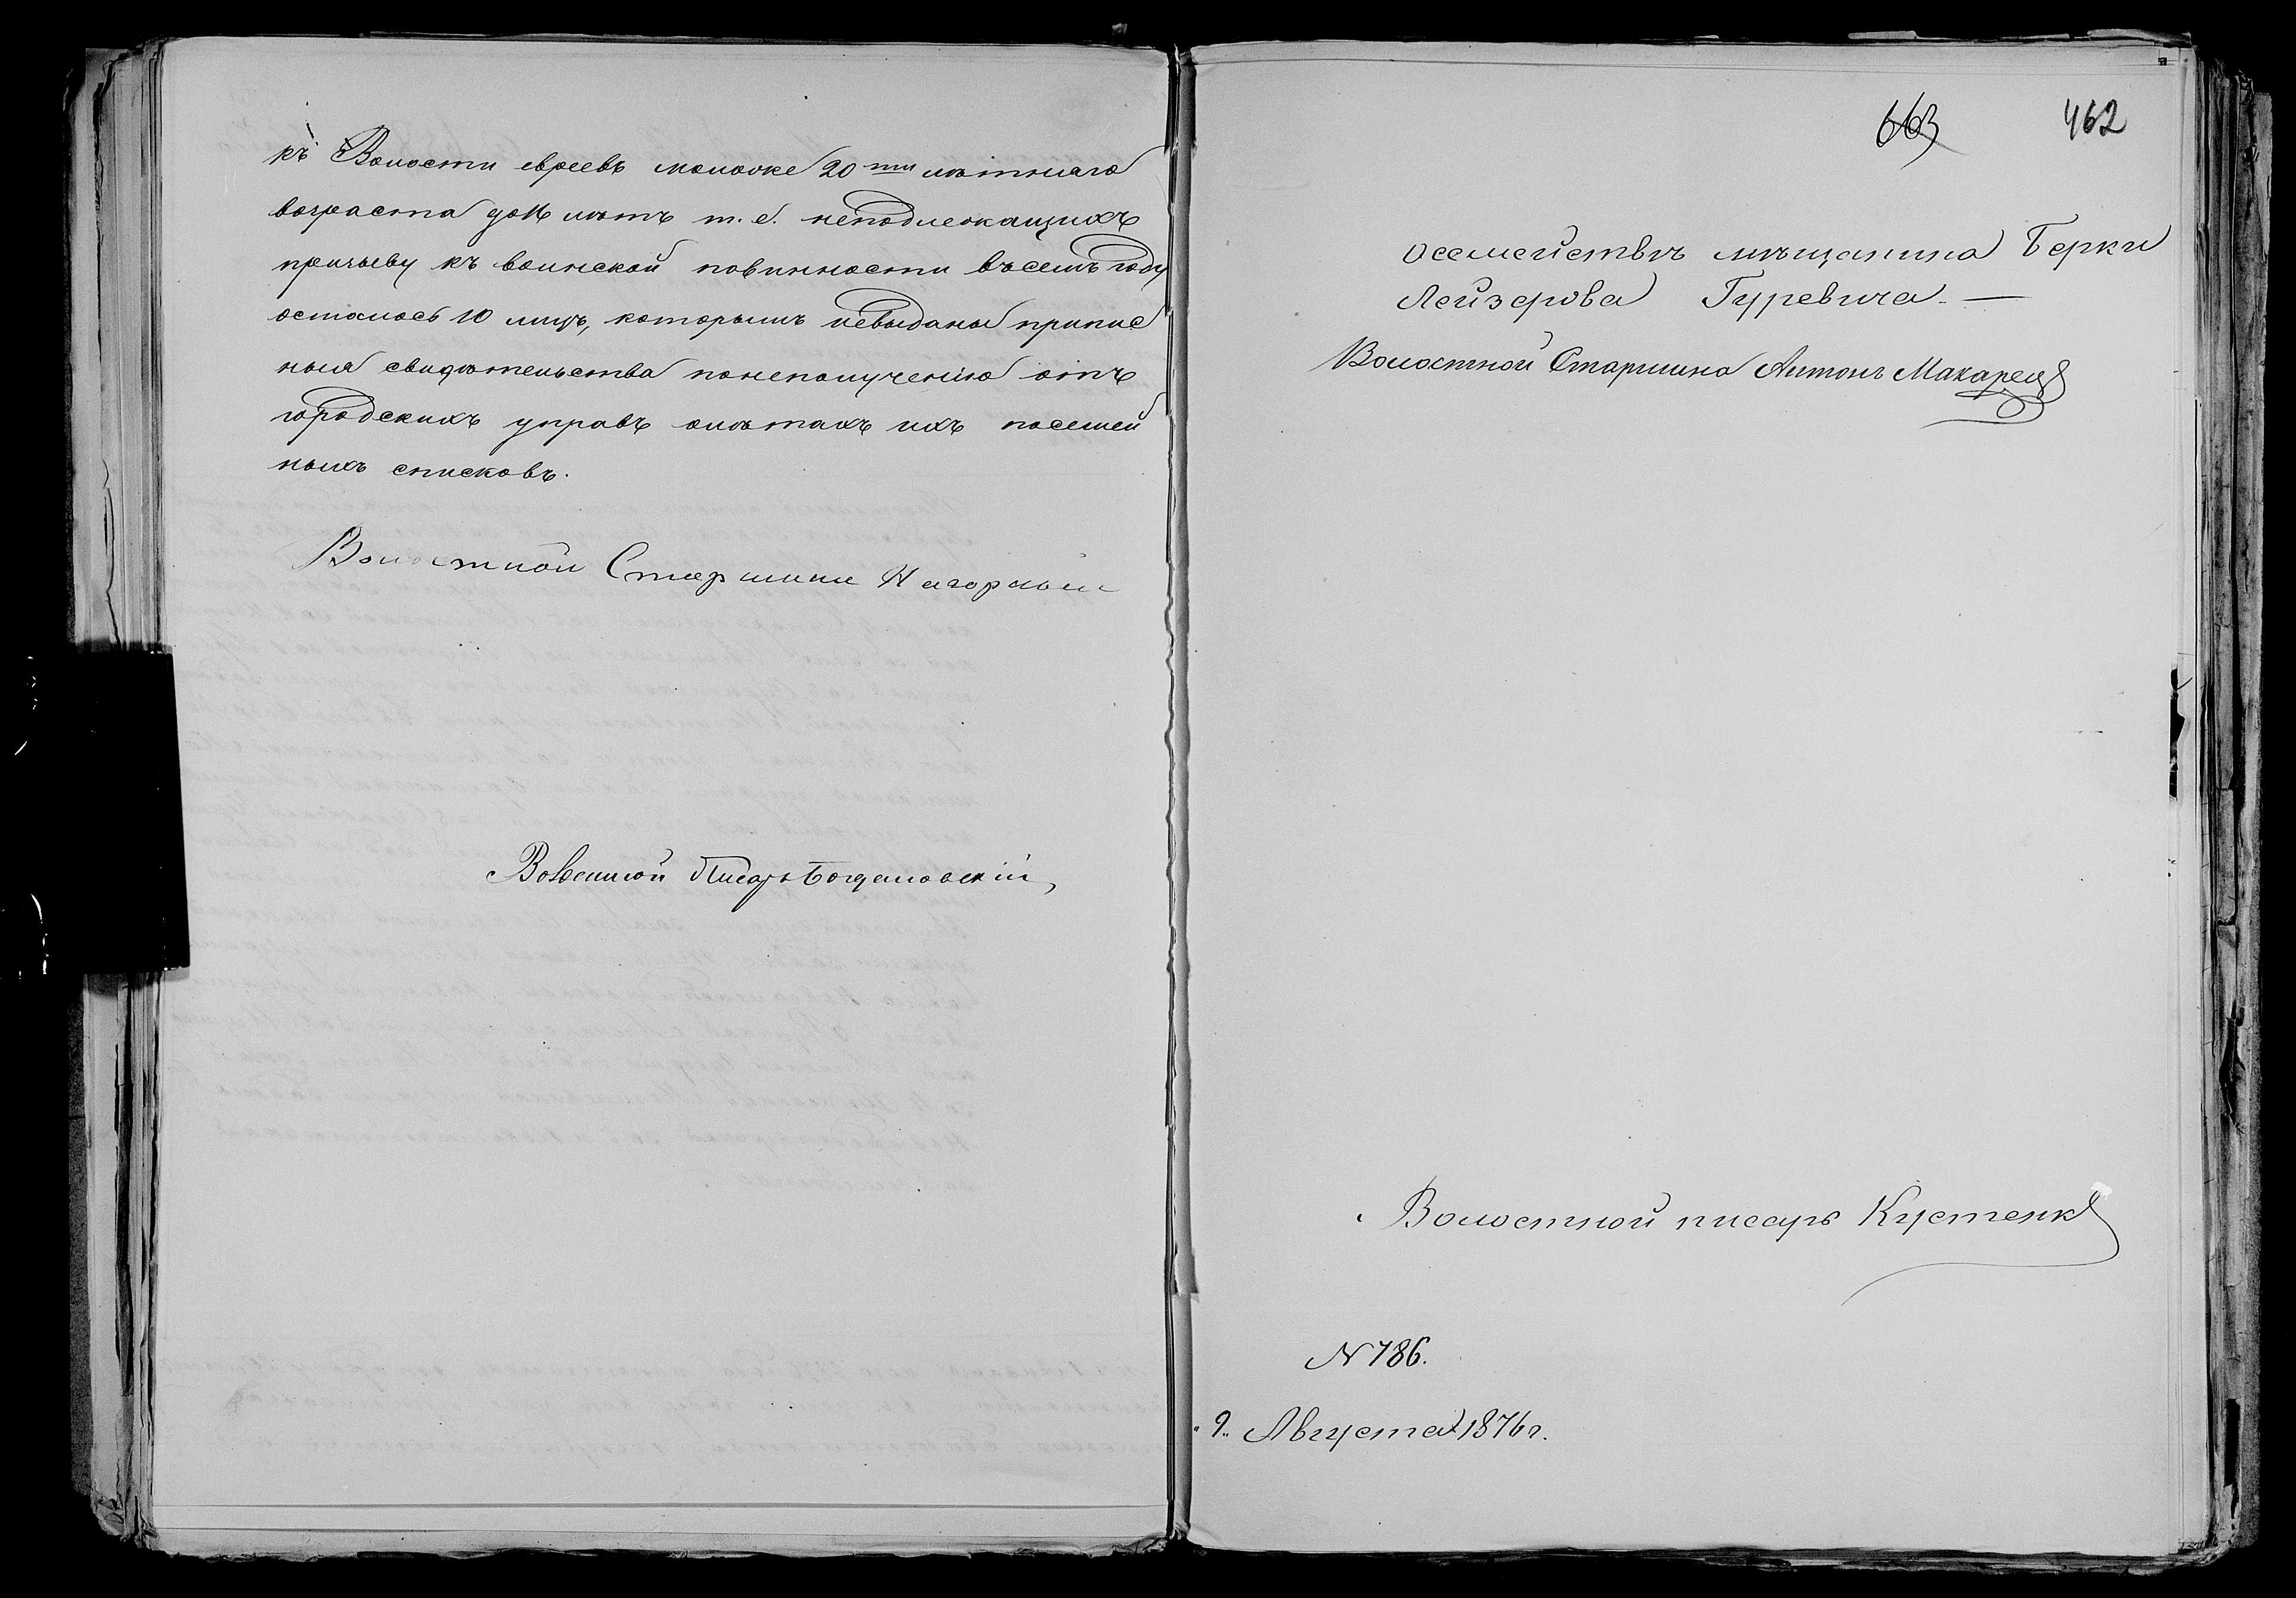 къ Волости евреевъ моложе 20ти лѣтняго
возраста до 16 лѣтъ т.е. неподлежащихъ
призыву къ воинской повинности въ семъ году
осталось 10 лицъ, которымъ невыданы припис
ныя свидѣтельства понеполученію отъ
городскихъ управъ о лѣтахъ ихъ посемей
ныхъ списковъ.
Волостной Старшина Нагорный
Волостной Писарь Богдановскій
663 462
осемействѣ мѣщанина Берки
Лейзерова Гуревича. —
Волостной Старшина Антонъ Макарец
Волостной писарь Кустенко
N 786.
"9" Августа 1876 г.